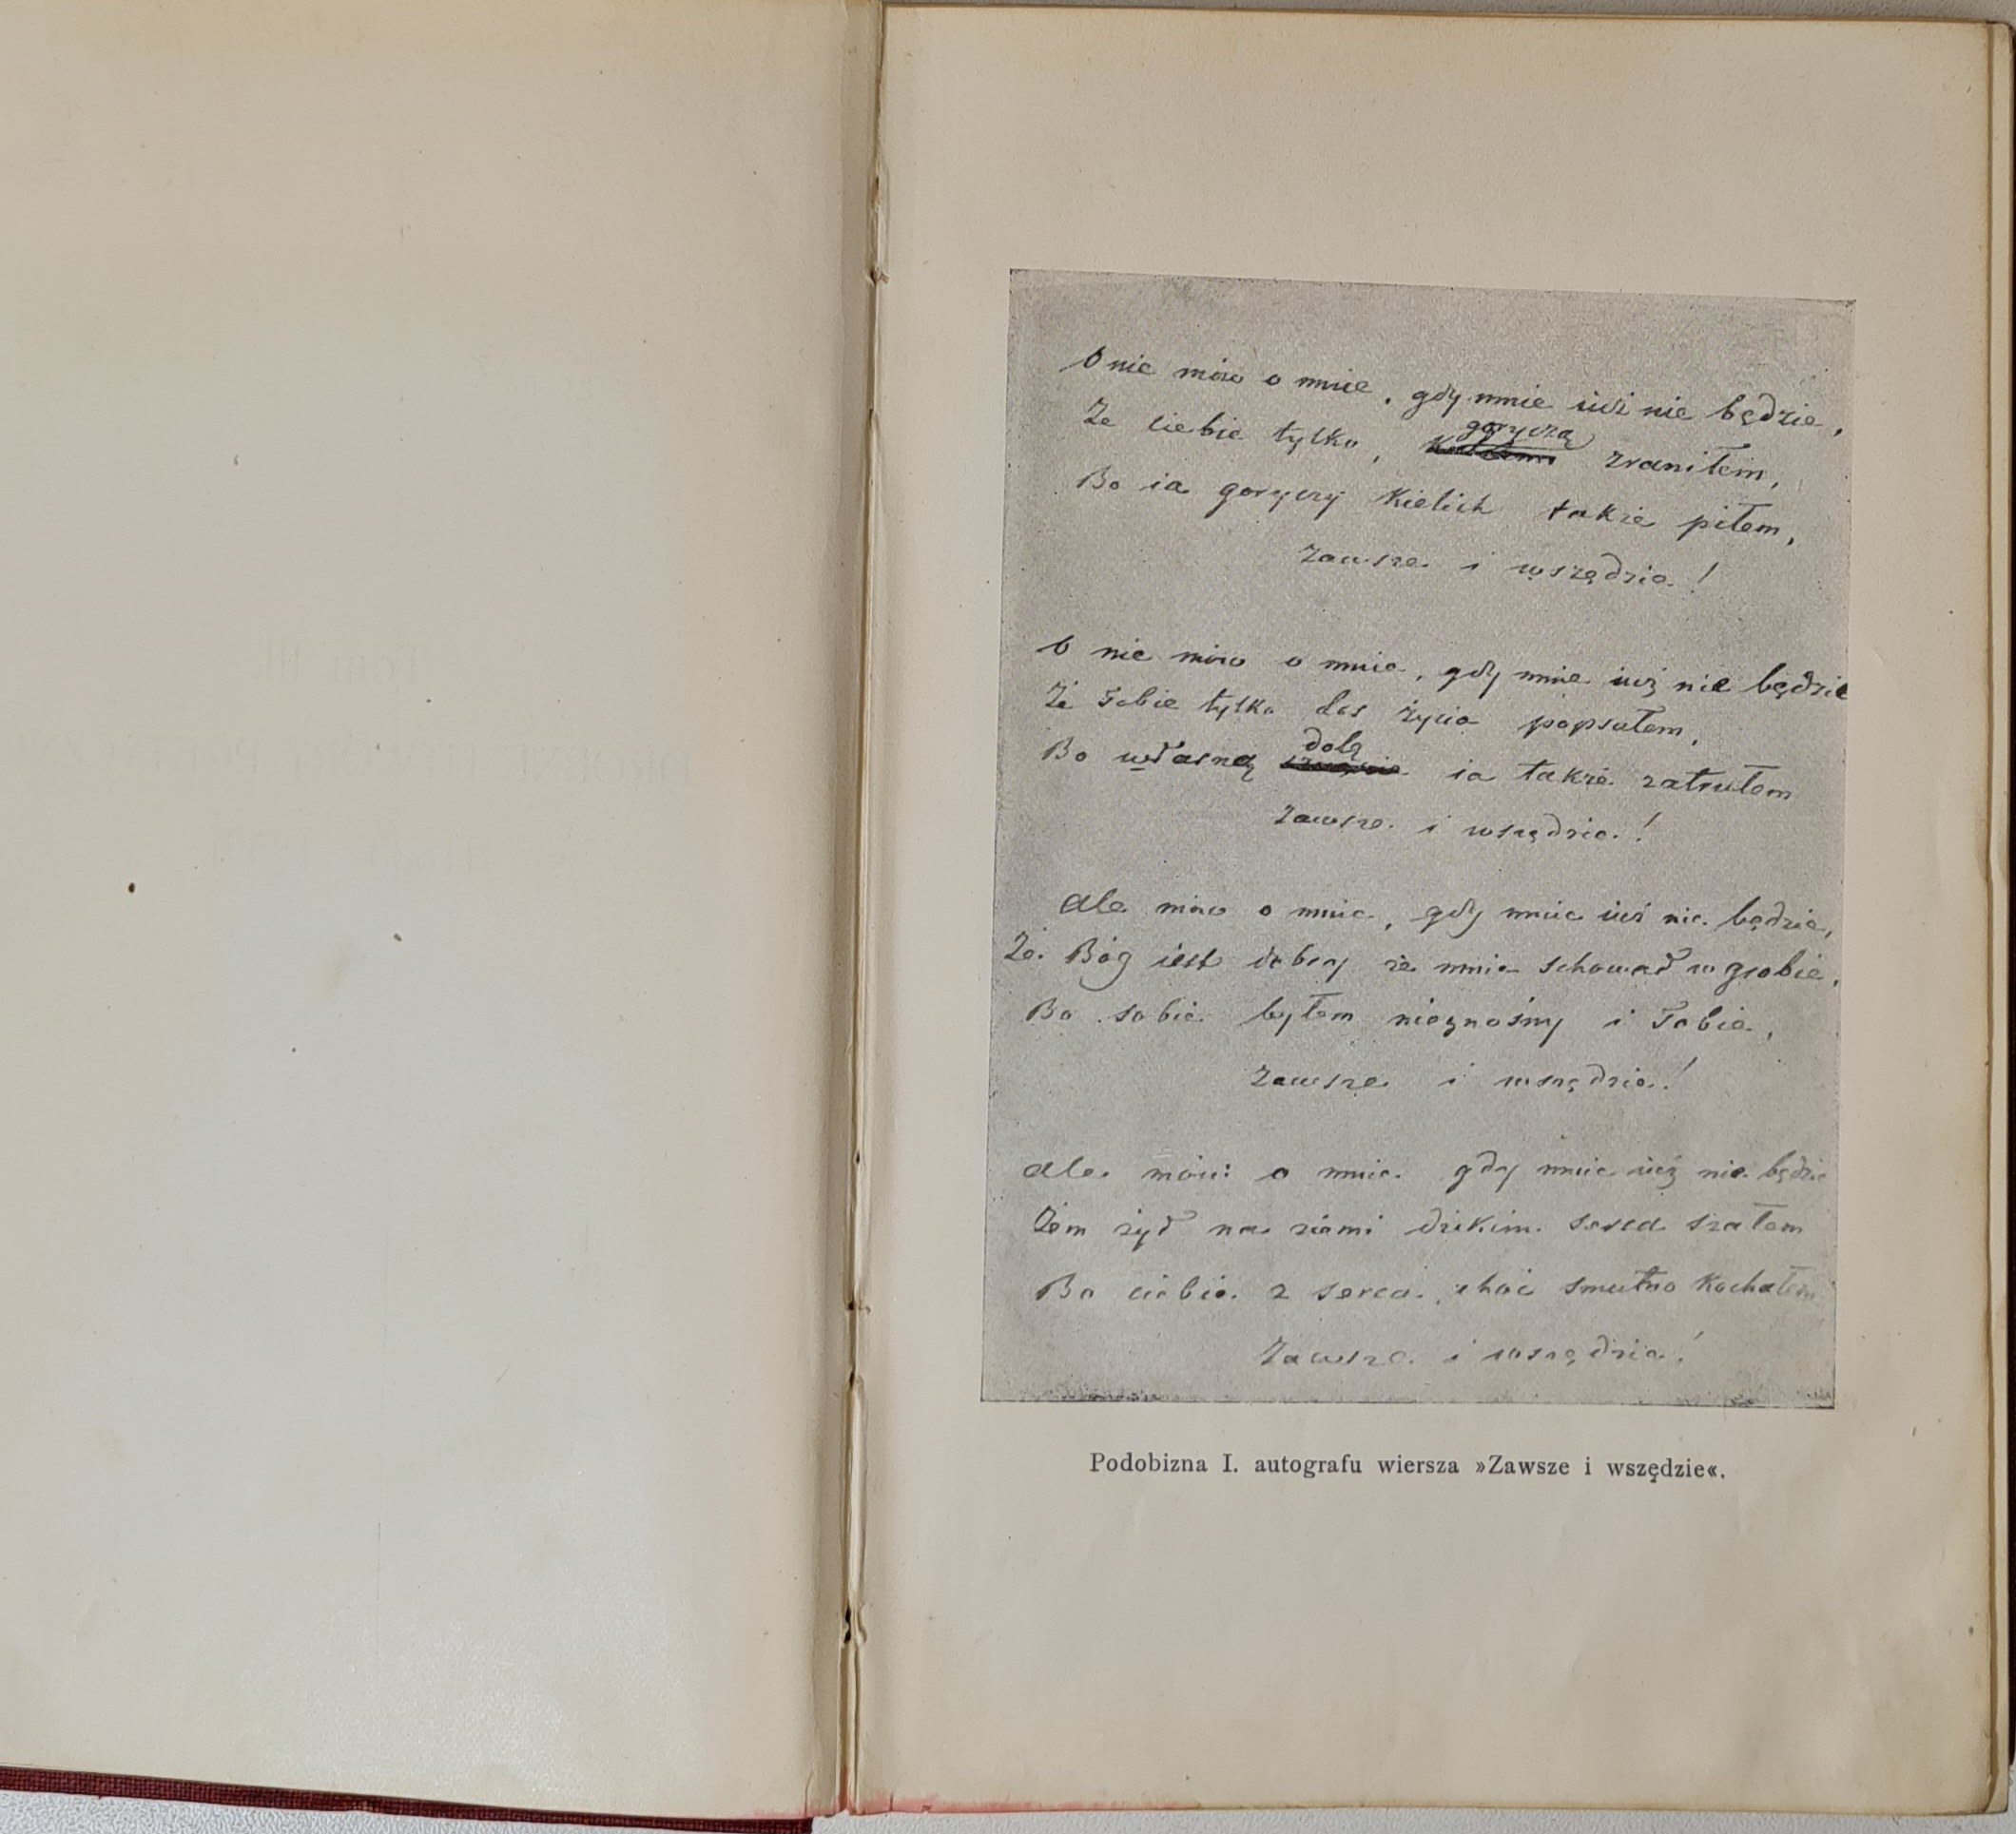 O nie mów o mnie, gdy mnie iuż nie będzie,
Że ciebie tylko, goryczą zraniłem,
Bo ia goryczy kielich także piłem,
Zawsze i wszędzie!
O nie mów o mnie, gdy mnie iuż nie będzie
Że Tobie tylko los życia popsułem,
Bo własną dolę ia także zatrułem
Zawsze i wszędzie!
Ale mów o mnie, gdy mnie iuż nie będzie,
Że Bóg iest dobry że mnie schował w grobie,
Bo sobie byłem nieznośny i Tobie,
Zawsze i wszędzie!
Ale mów o mnie gdy mnie iuż nie będzie
Żem żył na ziemi dzikim serca szałem
Bo ciebie z serca, choć smutno kochałem
Zawsze i wszędzie!
Podobizna I. autografu wiersza »Zawsze i wszędzie«.